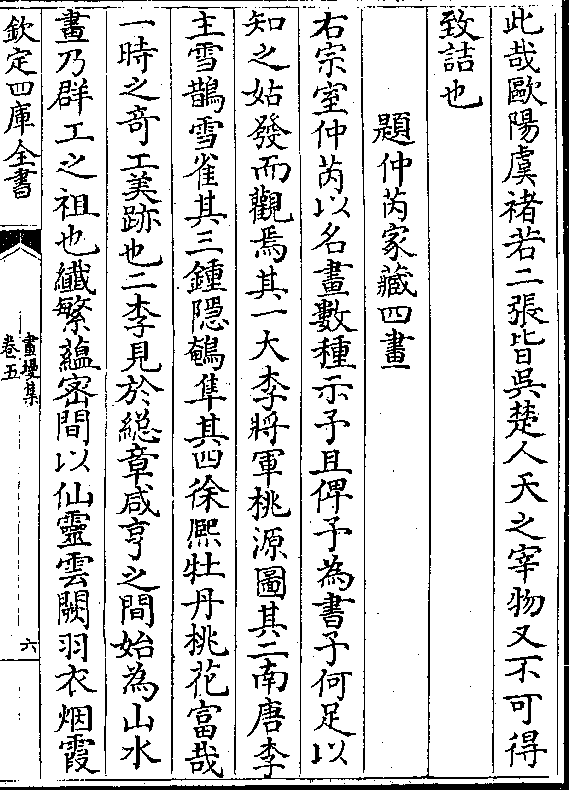 此哉歐陽虞褚若二張皆吳楚人天之宰物又不可得
致詰也
題仲芮家藏四畫
右宗室仲芮以名畫數種示予且俾予為書予何足以
知之姑發而觀焉其一大李將軍桃源圖其二南唐李
主雪鵲雪雀其三鍾隱鵪隼其四徐熈牡丹桃花富哉
一時之奇工美跡也二李見於総章咸亨之間始為山水
畫乃群工之祖也纎繁蘊密間以仙靈雲闕羽衣烟霞
欽定四庫全書
畫墁集
卷五
六